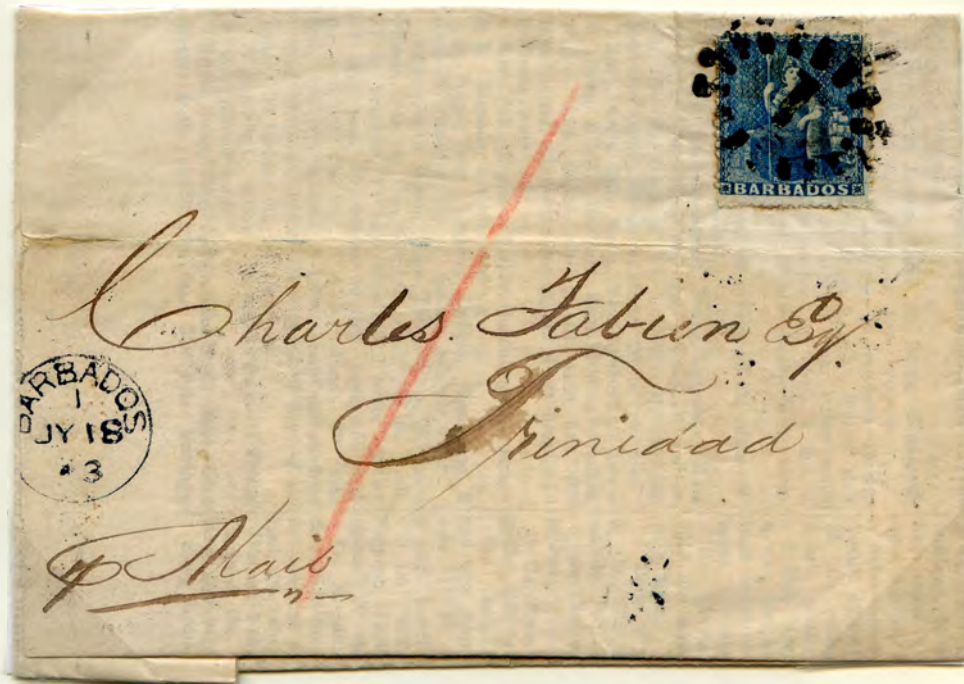 BARBADOS
Charles Fabien Esq
Trinidad
BARBADOS
1
JY 18
3
p Mail